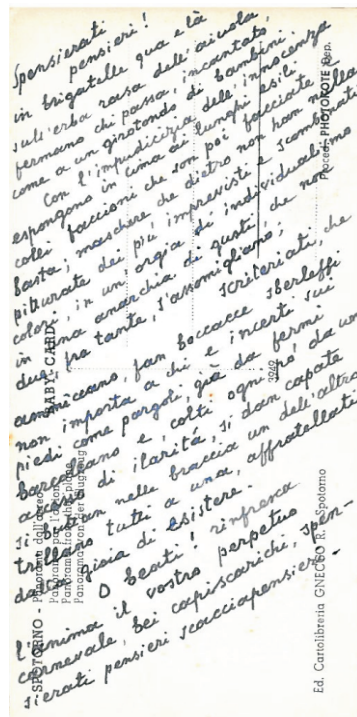 Spensierati
pensieri!
in brigatelle qua e là
sull'erba rasa dell'aiuola
fermano chi passa, incantato,
come a un girotondo di bambini.
Con l'impudicizia dell'innocenza
espongono in cima ai lunghi esili
colli faccioni che son poi facciate e
basta; maschere che dietro non han nulla
pitturate dei più imprevisti e scombinati
colori, in un'orgia di individualismo
in una anarchia di gusti, che non
due fra tante, s'assomigliano;
scriteriati, che
ammiccano, fan boccacce sberleffi
non importa a chi e incerti sui
piedi come pargoli, già da fermi
barcollano e, colti ogni po' da un
accesso di ilarità, si dan capate
si buttan nelle braccia un dell'altro
trillano tutti a una, affratellati
dalla gioia di esistere.
O beati! rinfresca
l'anima il vostro perpetuo
carnevale, bei capiscarichi, spen-
sierati pensieri scacciapensieri.
SPOTORNO - Panorama dall'aereo
Panorama par l'avion
Panorama from the airplane
Panorama von der Flugzeug
BABY-CARD
3949
Proced. PHOTONOTE Dep.
Ed. Cartolibreria GNECCO R. - Spotorno